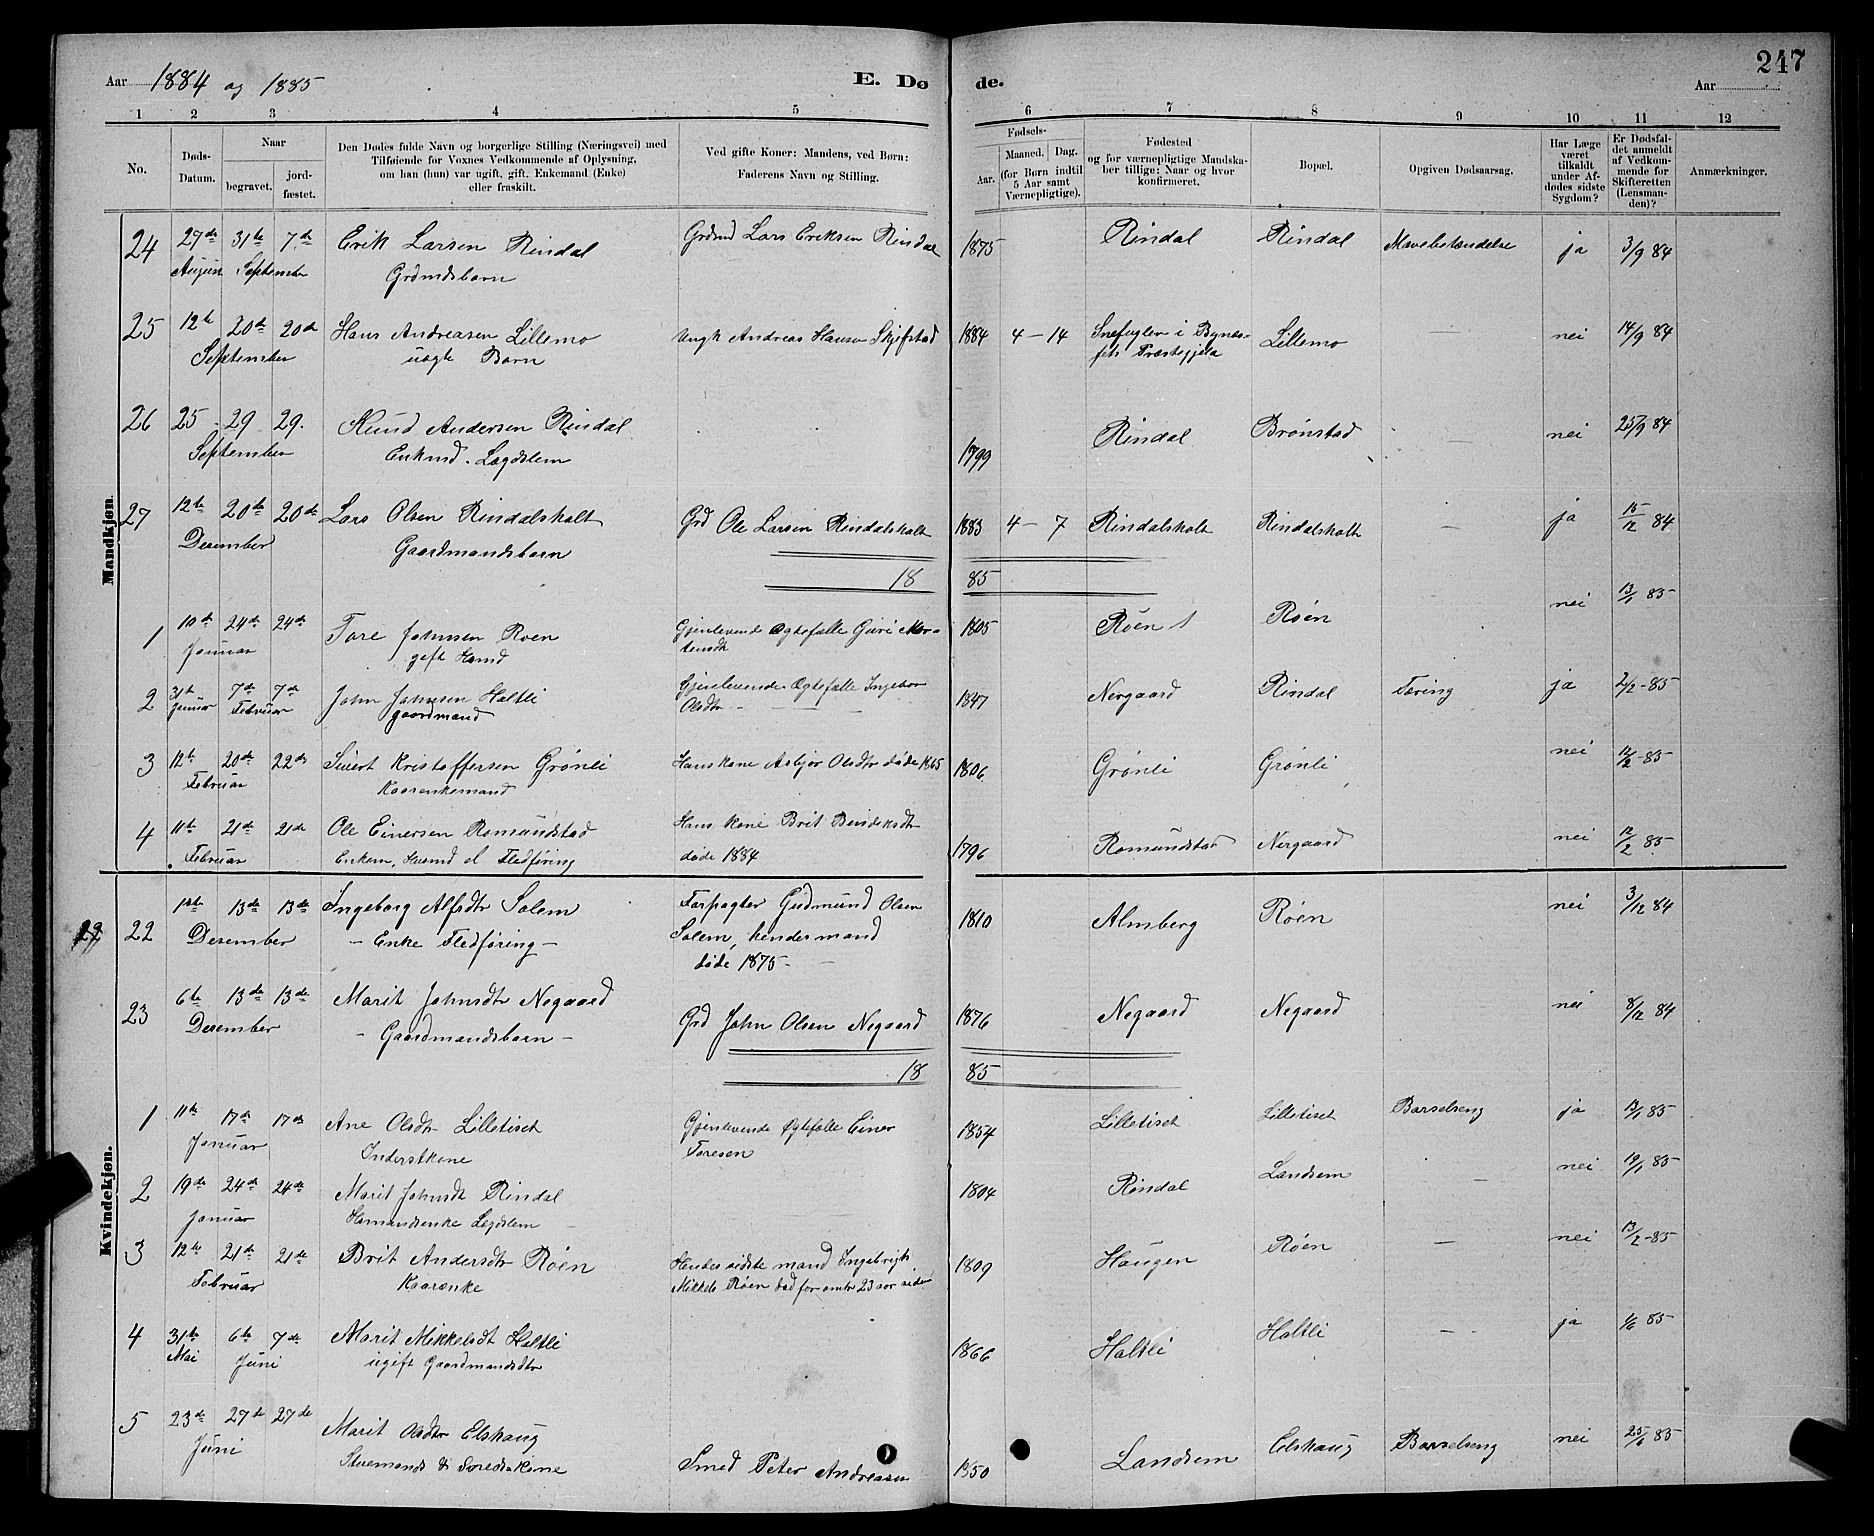 247
Aar 1884 og 1885 E. Døde. Aar
1 2 3 4 5 6 7 8 9 10 11 12
No. Døds-Datum. Naar begravet. jordfæstet. Den Dødes fulde Navn og borgerlige Stilling (Næringsvei) med Tilføiende for Voxnes Vedkommende af Oplysning, om han (hun) var ugift, gift, Enkemand (Enke) eller fraskilt. Ved gifte Koner: Mandens, ved Børn: Faderens Navn og Stilling. Fødsels- Aar. Maaned. Dag. (for Børn indtil 5 Aar samt Værnepligtige). Fødested og for værnepligtige Mandskaber tillige: Naar og hvor konfirmeret. Bopæl. Opgiven Dødsaarsag. Har Læge været tilkaldt under Afdødes sidste Sygdom? Er Dødsfaldet anmeldt af Vedkommende for Skifteretten (Lensmanden)? Anmærkninger.
Mandkjøn.
24 27de 31te 7de Erik Larsen Rindal Grdmd Lars Eriksen Rindal 1875 Rindal Rindal Mavebetændelse ja 3/9 84
August September Grdmdsbarn
25 12te 20de 20de Hans Andreasen Lillemo Ungk Andreas Hansen Skjefstad 1884 4 - 14 Snefuglen i Bynes- Lillemo — nei 14/9 84
September uægte Barn fets Præstegjeld
26 25 29 29. Knud Andersen Rindal 1799 Rindal Brønstad — nei 25/9 84
September Enkmd. Lægdslem
27 12te 20de 20de Lars Olsen Rindalsholt Grd Ole Larsen Rindalsholt 1883 4 - 7 Rindalsholt Rindalsholt — ja 15/12 84
Desember Gaardmandsbarn
1885
1 10de 24de 24de Tore Johnsen Roen Gjenlevende Ægtefælle Guri Mor- 1805 Röen Röen nei 13/1 85
Januar gift Hsmd tensdt
2 31te 7de 7de John Johnsen Haltli Gjenlevende Ægtefælle Ingebor 1847 Nergaard Rindal Tæring ja 2/2 - 85
Januar Februar gaardmand Olsdtr
3 12te 20de 22de Siwert Kristoffersen Grönli Hans kone Asbjör Olsdtr døde 1865 1806 Grönli Grönli nei 12/2 - 85
Februar Kaarenkemand
4 11te 21de 21de Ole Einersen Romundstad Hans kone Brit Bendeksdtr 1796 Romundstad Nergaard nei 12/2 85
Februar Enkem, Husmd el Fledføring døde 1884
Kvindekjøn.
22 1ste 13de 13de Ingeborg Alfsdtr Solem Forpagter Gudmund Olsen 1810 Almberg Röen nei 3/12 84
Desember - Enke Fledføring - Solem, hendes mand
døde 1875 -
23 6te 13de 13de Marit Johnsdtr Negaard Grd John Olsen Negaard 1876 Negaard Negaard nei 8/12 84
Desember - Gaardmandsbarn -
1885
1 11te 17de 17de Ane Olsdtr Lilletiset Gjenlevende Ögtefælle Einer 1854 Lilletiset Lilletiset Barselseng ja 13/1 85
Januar Inderstkone Toresen
2 19de 24de 24de Marit Johnsdt Rindal 1804 Rindal Landsem — nei 19/1 85
Januar Hsmandsenke Lægdslem
3 12te 21de 21de Brit Andersdtr Röen Hendes sidste mand Ingebrigt 1809 Haugen Röen — nei 13/2 - 85
Februar Kaarenke Mikkels Röen død for omtr 23 aar siden
4 31te 6te 7de Marit Mikkelsdt Haltli 1866 Haltli Haltli — ja 1/6 85
Mai Juni ugift Gaardmandsdtr
5 23de 27de 27de Marit Olsdtr Elshaug 1850 Landsem Elshaug Barselseng nei 25/6 85
Juni Smed Peter Andreasen